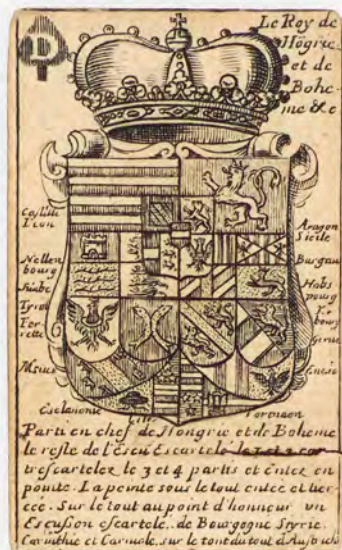 D
Le Roy de
Högrie
et de
Bohe-
me &c
Castille
Leon
Nellen
bourg
Suabe
Tyrol
Fer-
rette
Aragon
Sicile
Burgau
Habs
bourg
bourg
Esclavonie
Parti en chef de Hongrie et de Boheme
le reste de l'Escu Escartelé
trescartelez le 3 et 4 partis et Entez en
pointe. La pointe sous le tout entee et tier-
cee. Sur le tout au point d'honneur un
Escusson escartelé.. de Bourgogne Styrie
Carinthie et Carniole, sur le tout du tout d'Austriche